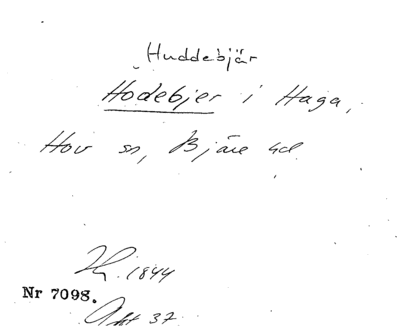 Huddebjär
Hodebjer i Haga,
Hov sn, Bjäre hd
1844
Nr 7098.
37